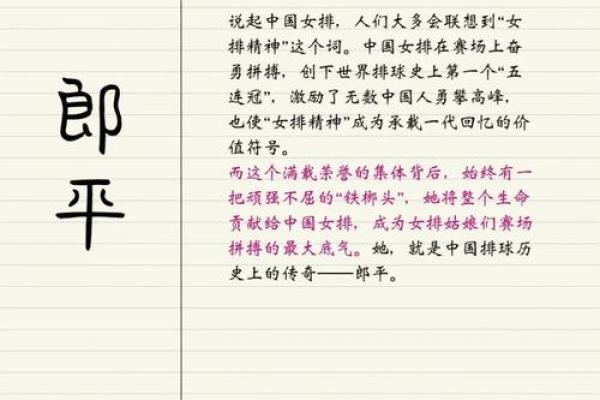 郎平
说起中国女排，人们大多会联想到“女
排精神”这个词。中国女排在赛场上奋
勇拼搏，创下世界排球史上第一个“五
连冠”，激励了无数中国人勇攀高峰，
也使“女排精神”成为承载一代回忆的价
值符号。
而这个满载荣誉的集体背后，始终有一
把顽强不屈的“铁榔头”，她将整个生命
贡献给中国女排，成为女排姑娘们赛场
拼搏的最大底气。她，就是中国排球历
史上的传奇——郎平。